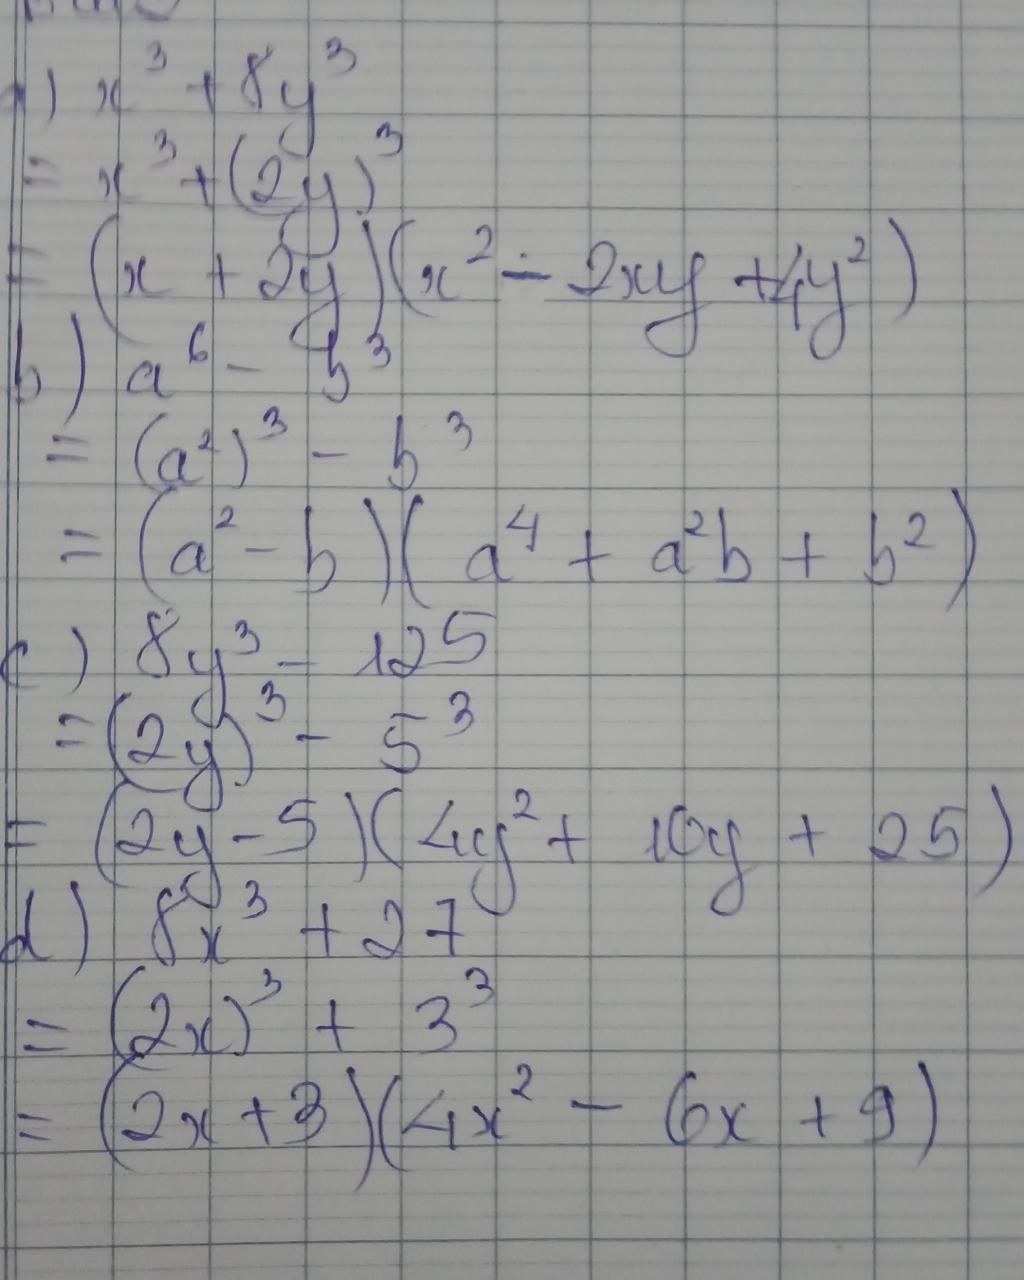 a) x³ + 8y³
= x³ + (2y)³
= (x + 2y)(x² - 2xy + 4y²)
b) a⁶ - b³
= (a²)³ - b³
= (a² - b)(a⁴ + a²b + b²)
c) 8y³ - 125
= (2y)³ - 5³
= (2y - 5)(4y² + 10y + 25)
d) 8x³ + 27
= (2x)³ + 3³
= (2x + 3)(4x² - 6x + 9)